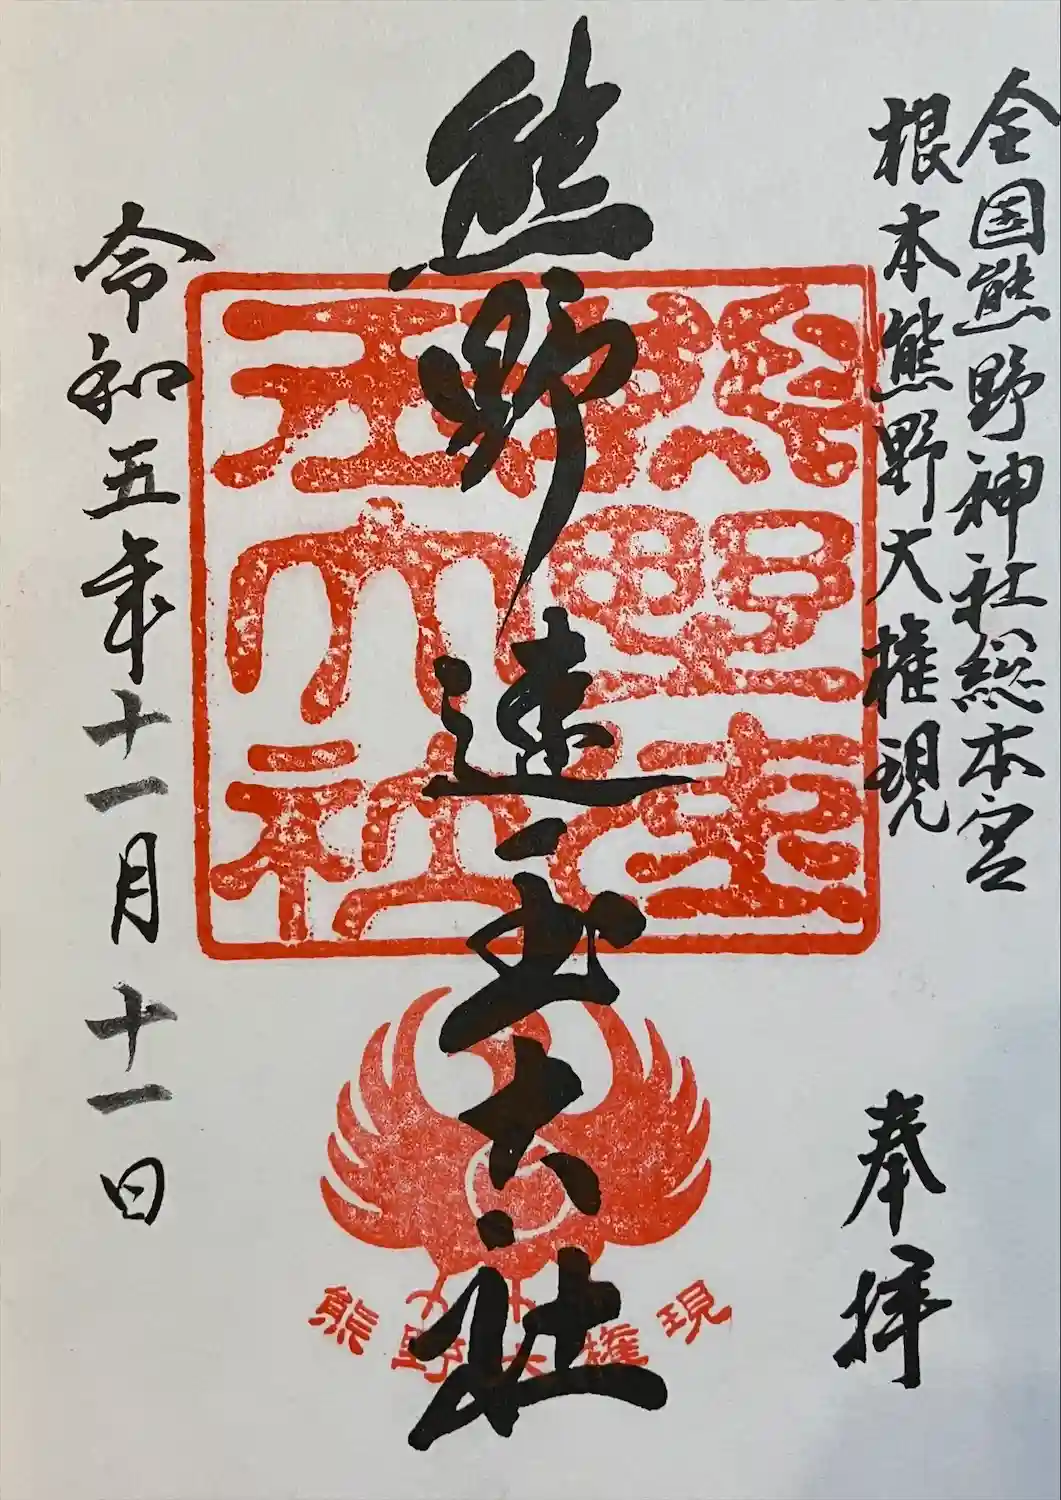 全国熊野神社総本宮
根本熊野大権現
奉拝
熊野速玉大社
熊野速玉大社
熊野大権現
令和五年十一月十一日